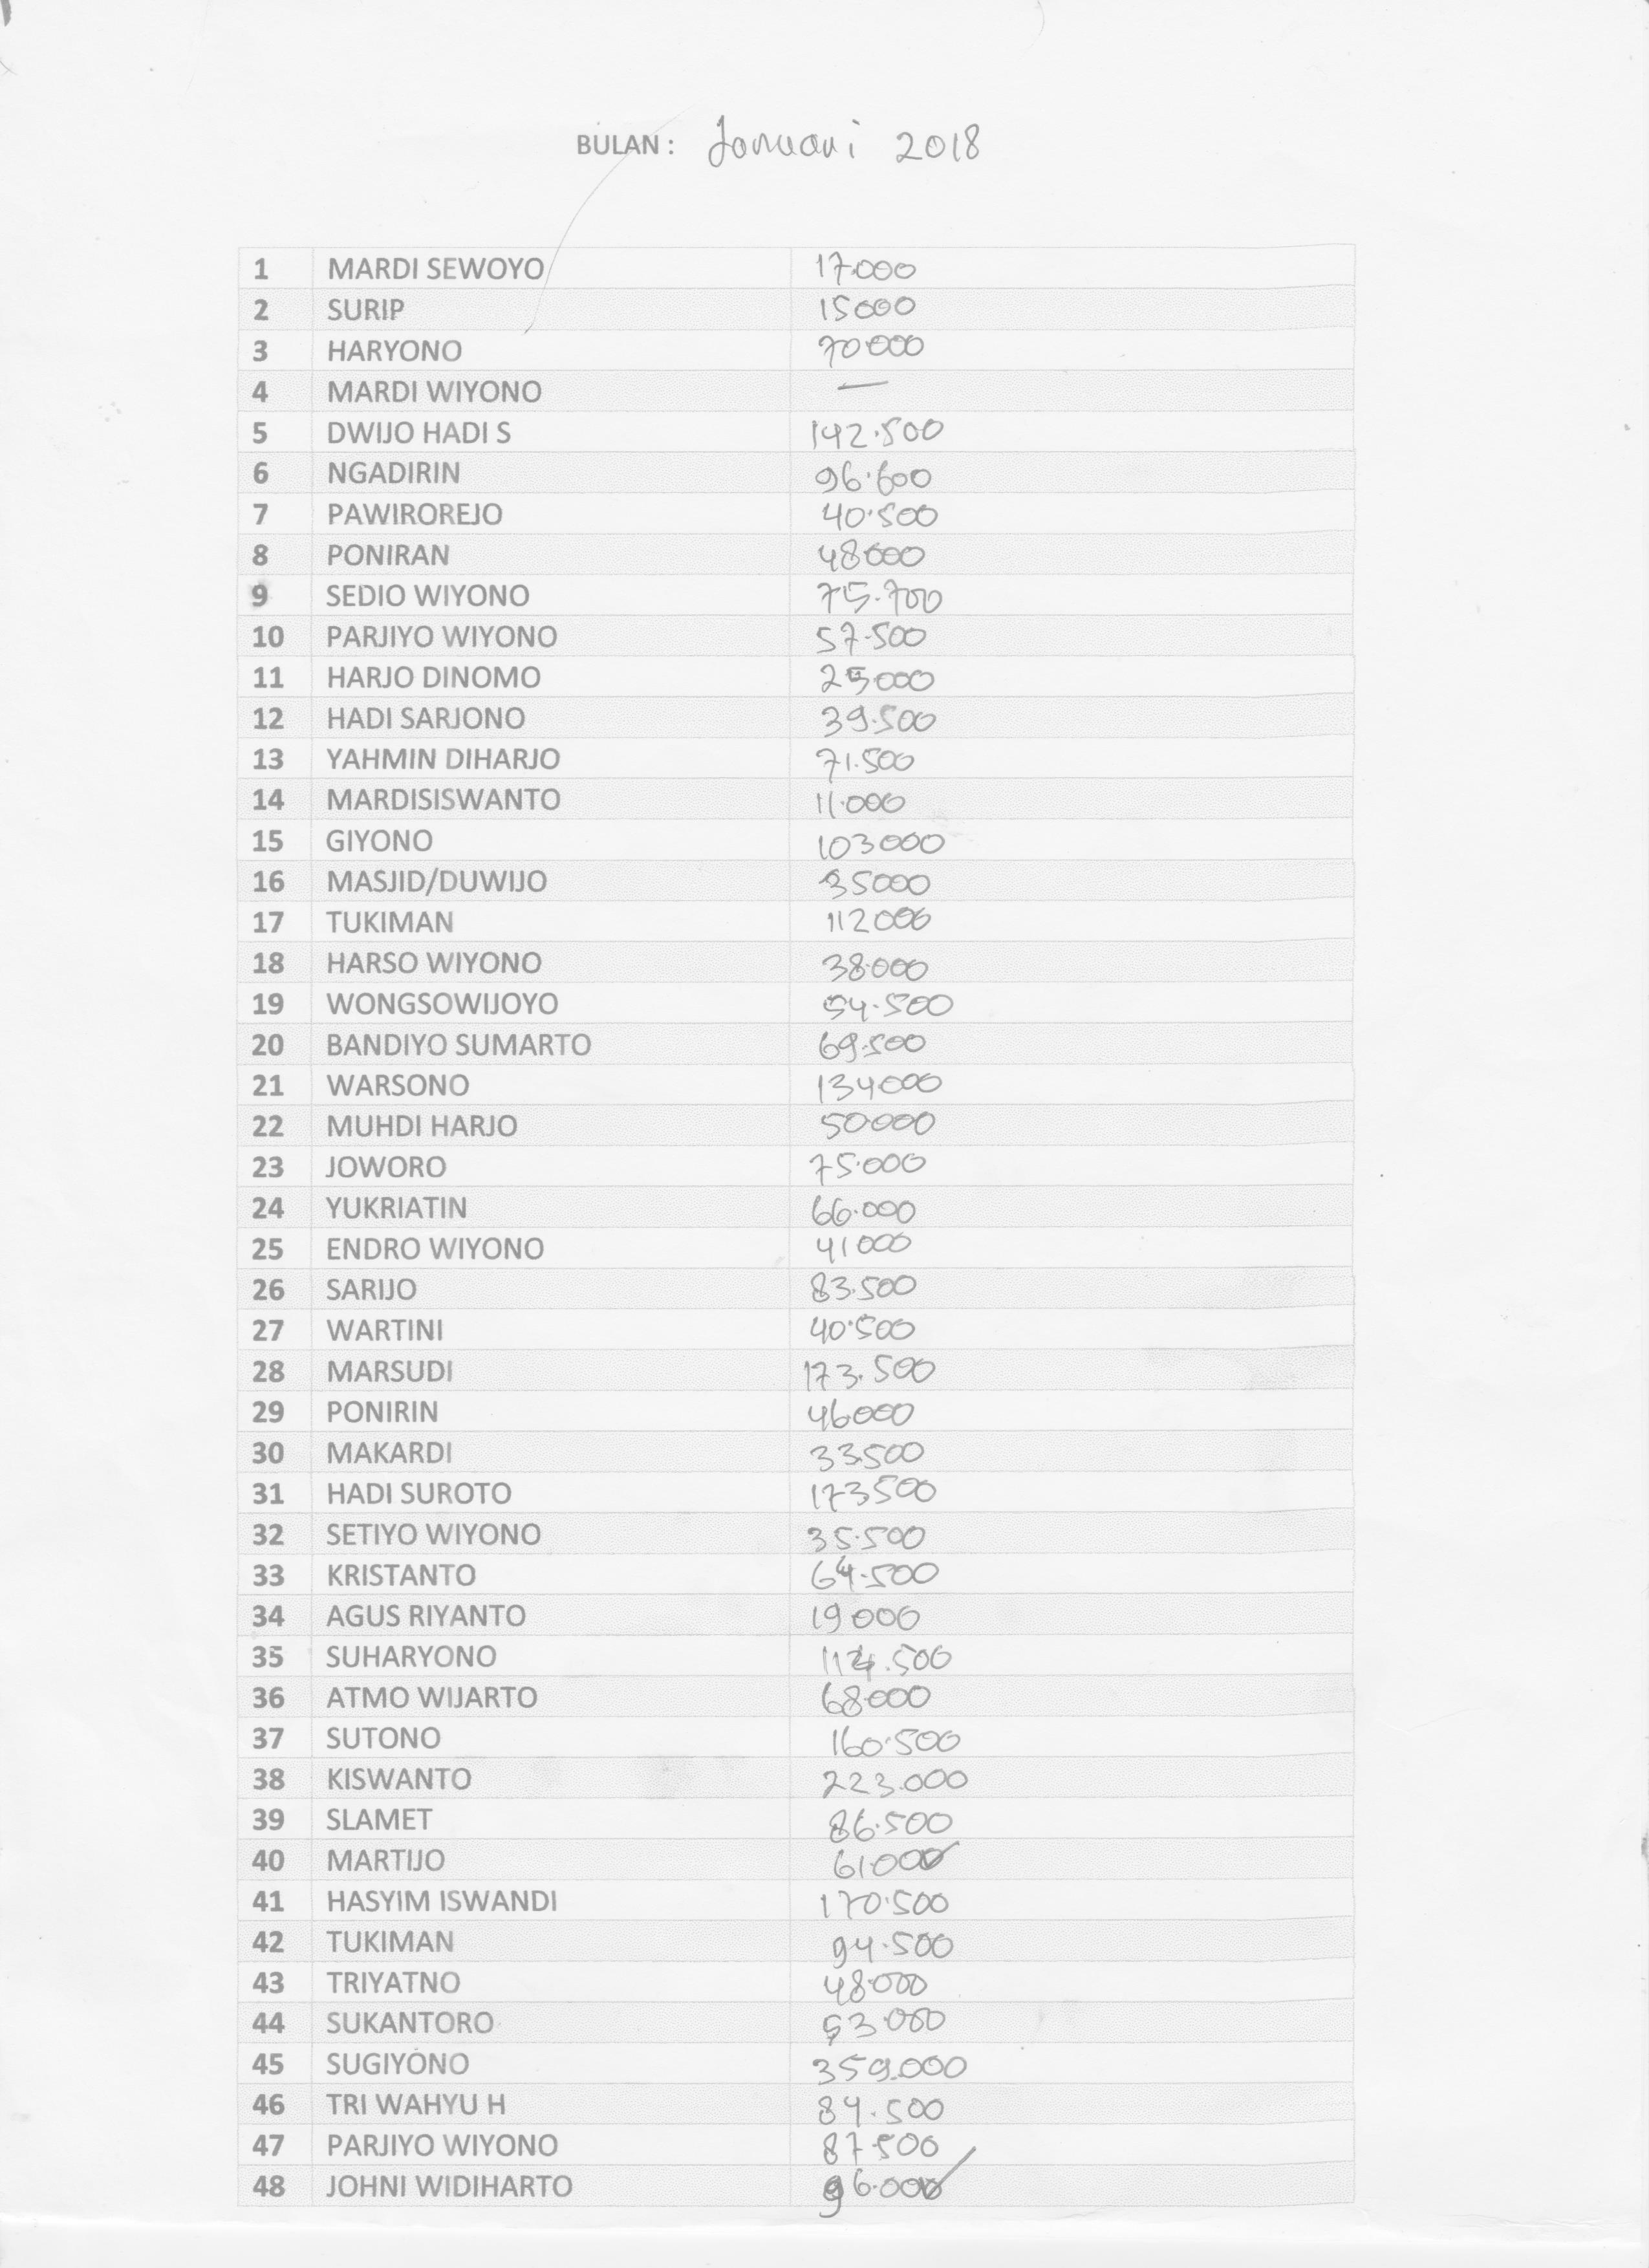 BULAN : Januari 2018
1 MARDI SEWOYO 17.000
2 SURIP 15000
3 HARYONO 70000
4 MARDI WIYONO —
5 DWIJO HADI S 142.500
6 NGADIRIN 96.600
7 PAWIROREJO 40.500
8 PONIRAN 48000
9 SEDIO WIYONO 75.700
10 PARJIYO WIYONO 57.500
11 HARJO DINOMO 25000
12 HADI SARJONO 39.500
13 YAHMIN DIHARJO 71.500
14 MARDISISWANTO 11.000
15 GIYONO 103000
16 MASJID/DUWIJO 35000
17 TUKIMAN 112000
18 HARSO WIYONO 38.000
19 WONGSOWIJOYO 54.500
20 BANDIYO SUMARTO 69.500
21 WARSONO 134000
22 MUHDI HARJO 50000
23 JOWORO 75.000
24 YUKRIATIN 66.000
25 ENDRO WIYONO 41000
26 SARIJO 83.500
27 WARTINI 40.500
28 MARSUDI 173.500
29 PONIRIN 46000
30 MAKARDI 33.500
31 HADI SUROTO 173500
32 SETIYO WIYONO 35.500
33 KRISTANTO 64.500
34 AGUS RIYANTO 19000
35 SUHARYONO
36 ATMO WIJARTO 68000
37 SUTONO 160.500
38 KISWANTO 223.000
39 SLAMET 86.500
40 MARTIJO 61.000
41 HASYIM ISWANDI 170.500
42 TUKIMAN 94.500
43 TRIYATNO 48.000
44 SUKANTORO 53.000
45 SUGIYONO 359.000
46 TRI WAHYU H 84.500
47 PARJIYO WIYONO 87.500
48 JOHNI WIDIHARTO 96.000